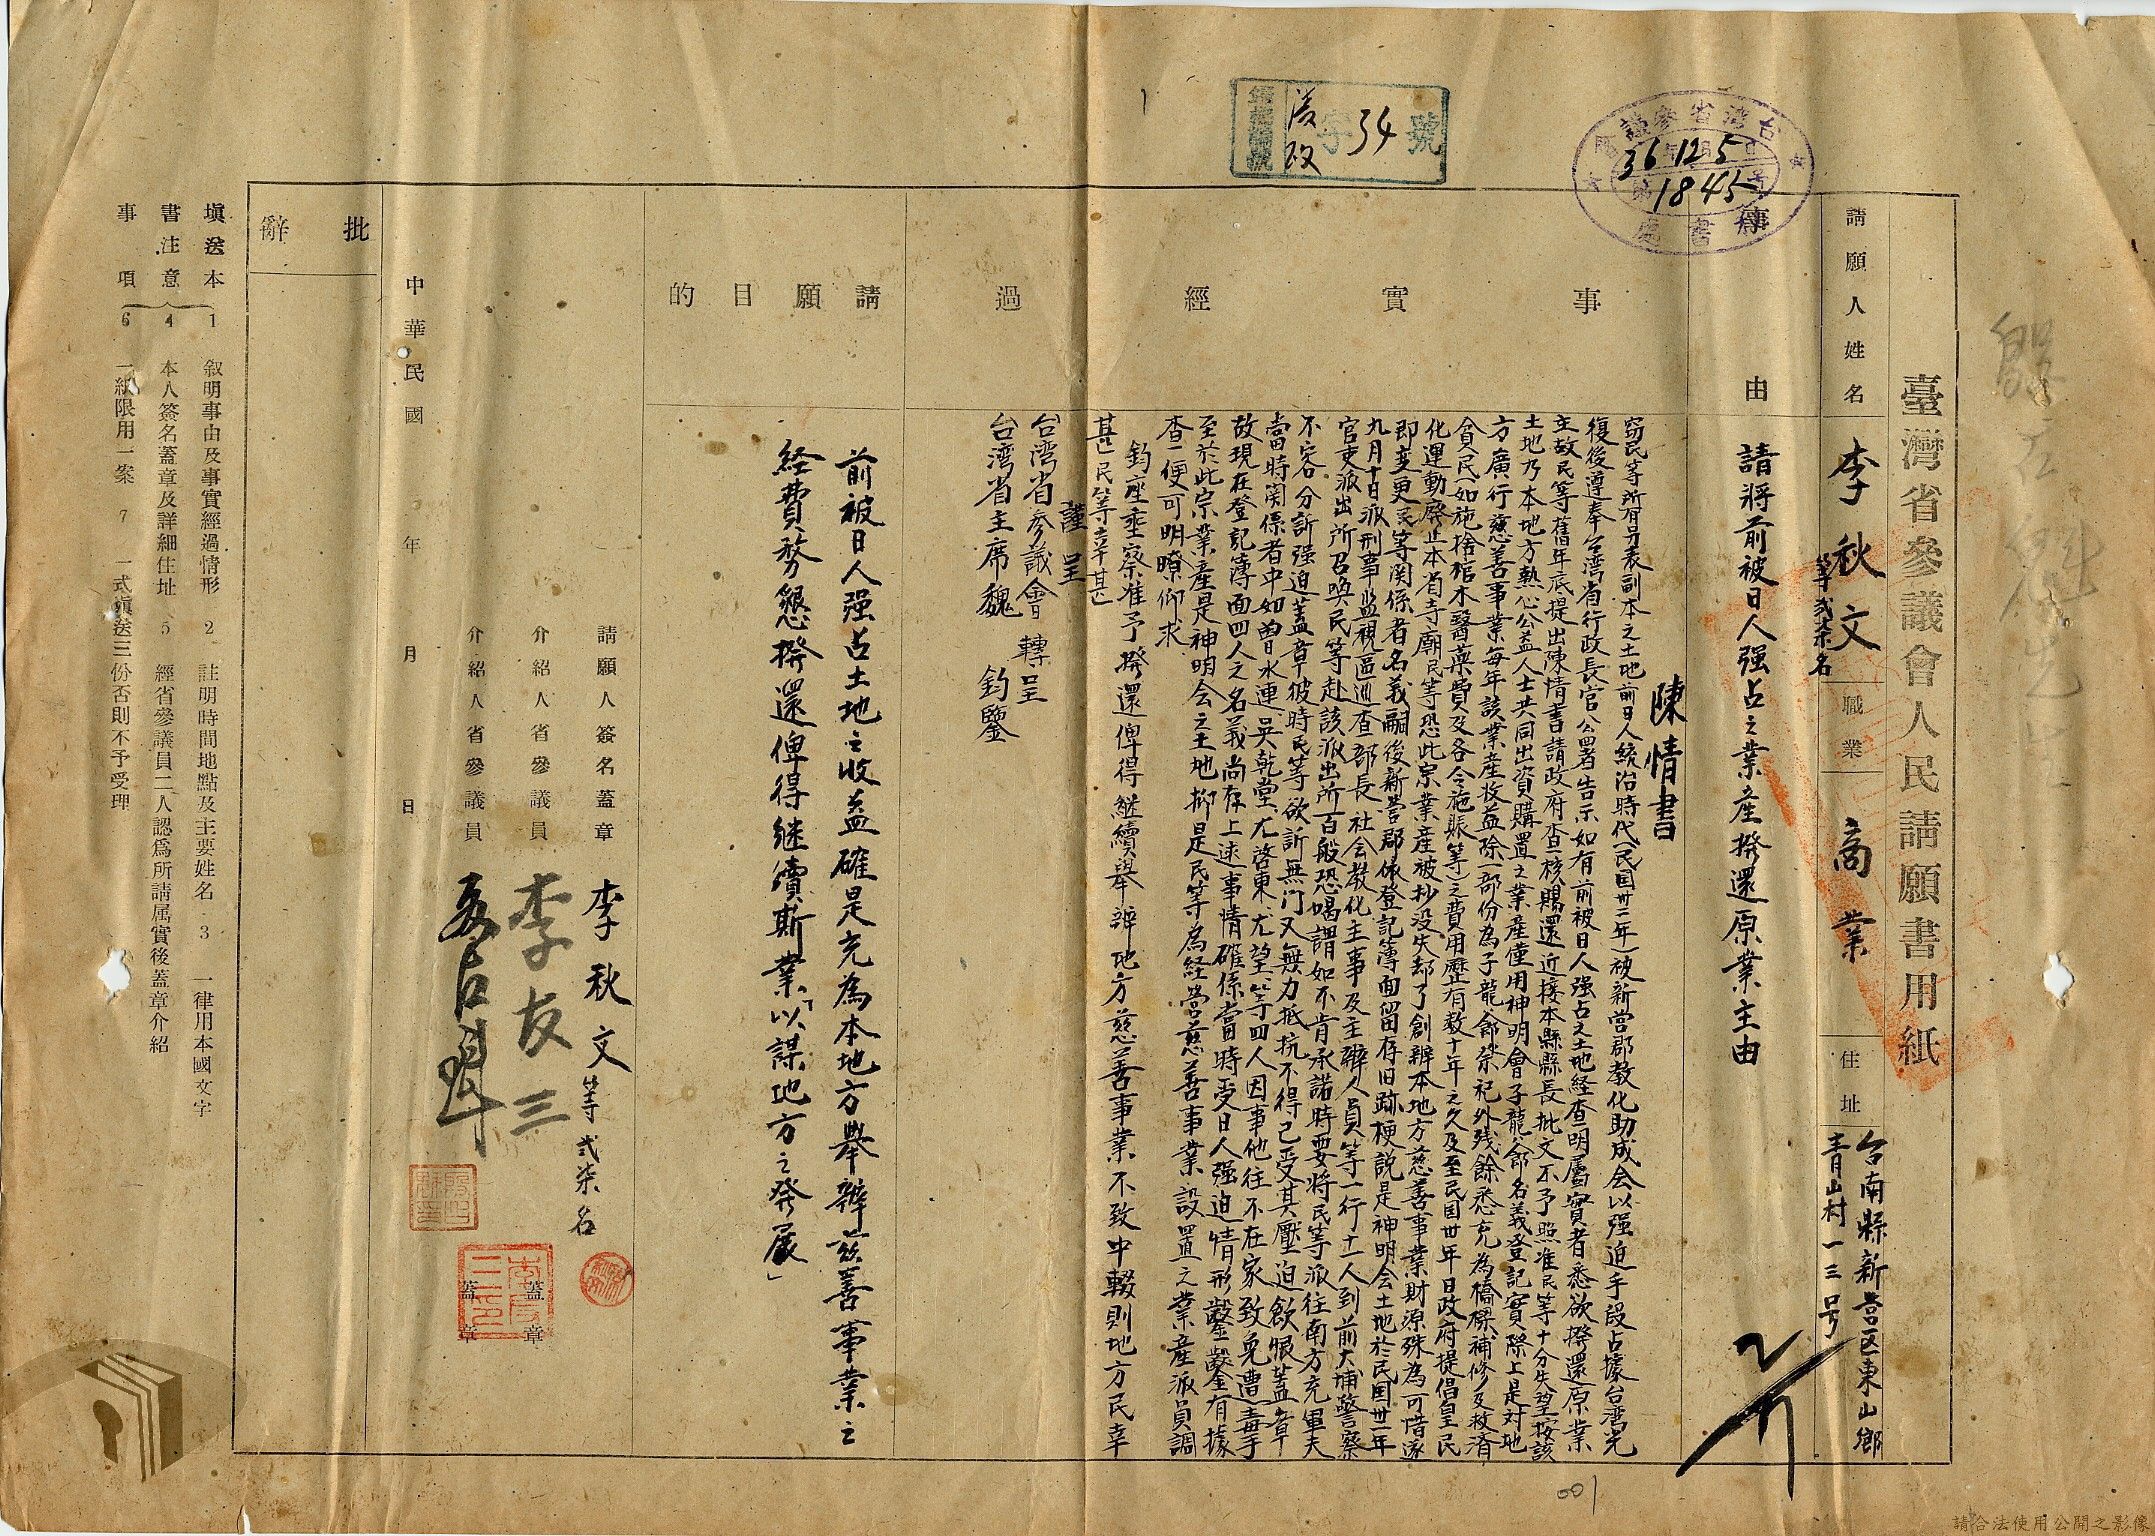 臺灣省參議會人民請願書用紙
請願人姓名 李秋文 等貳柒名 職業 商業 住址 台南縣新营区東山鄉
青山村一三号
事由 請將前被日人强占之業產撥還原業主由
事實經過
陳情書
窃民等所有另表副本之土地前日人統治時代(民国卅二年)被新营郡教化助成会以强迫手段占據台湾光
復後遵奉台湾省行政長官公署告示如有前被日人强占之土地経查明屬實者悉欲撥還原業
主故民等舊年底提出陳情書請政府查核賜還近接本縣縣長批文不予照准民等十分失望按該
土地乃本地方熱心公益人士共同出資購置之業產僅用神明會子龍爺名義登記實際上是对地
方廣行慈善事業每年該業產收益除一部份為子龍爺祭祀外残餘悉充為橋樑補修及救済
貧民(如施捨棺木醫薬費及各令施賬等)之費用歷有数十年之久及至民国卅年日政府提倡皇民
化運動廃止本省寺廟民等恐此宗業產被抄没失却了創辦本地方慈善事業財源殊為可惜遂
即変更民等関係者名義嗣後新营郡依登記簿面留存旧跡梗説是神明会土地於民国卅一年
九月十日派刑事監視區巡查部長社会教化主事及主辦人員等一行十一人到前大埔警察
官吏派出所召喚民等赴該派出所百般恐喝謂如不肯承諾時要將民等派往南方充軍夫
不容分訴强迫蓋章彼時民等欲訴無门又無力抵抗不得已受其壓迫飲恨蓋章
當時関係者中如曽水連、吳乾堂、尤啓東、尤望、等四人因事他往不在家致免遭毒手
故現在登記簿面四人之名義尚存上述事情確係當時受日人强迫情形鑿鑿有據
至於此宗業產是神明会之土地抑是民等為経营慈善事業設置之業產派員調
查一便可明瞭仰求
鈞座垂察准予撥還俾得継續舉辦地方慈善事業不致中輟則地方民幸
甚民等幸甚
謹呈
台湾省参議會 轉呈
台湾省主席魏 鈞鑒
請願目的
前被日人强占土地之收益確是充為本地方舉辦慈善事業之
経費務懇撥還俾得継續斯業「以謀地方之発展」
請願人簽名蓋章 李秋文等貳柒名
介紹人省參議員 李友三 蓋章
介紹人省參議員 蓋章
中華民國 年 月 日
批辭
塡送本書注意事項
1 叙明事由及事實經過情形 2 註明時間地點及主要姓名 3 一律用本國文字
4 本人簽名蓋章及詳細住址 5 經省參議員二人認爲所請属實後蓋章介紹
6 一紙限用一案 7 一式塡送三份否則不予受理
字34號
台湾省參議會
36 12 5
1845
秘書處
001
請合法使用公開之影像